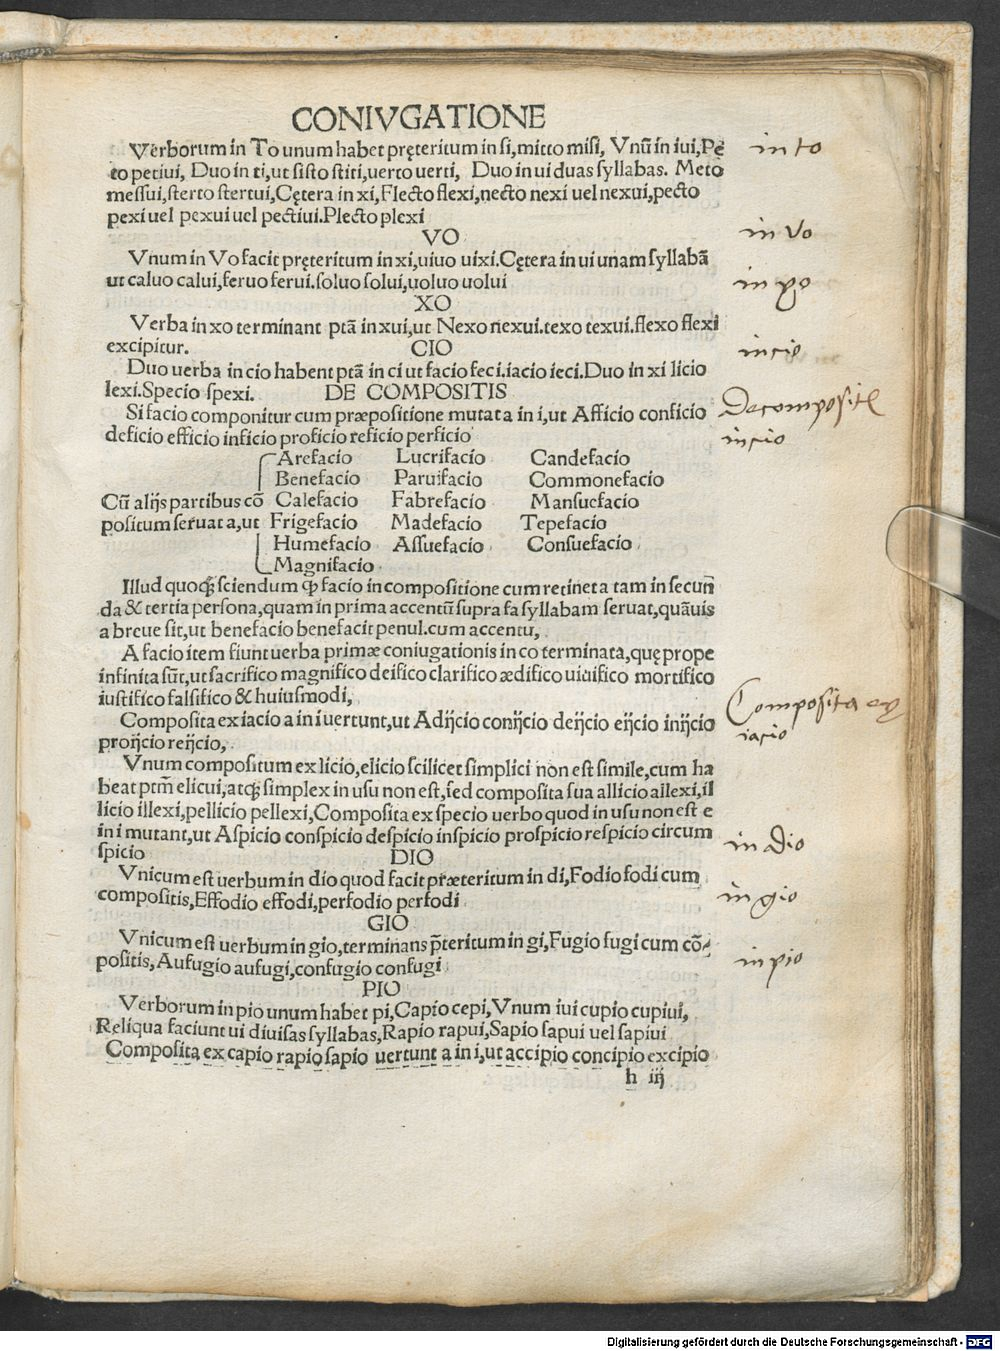 CONIVGATIONE
Verborum in To unum habet pręteritum in si, mitto misi, Vnũ in iui, Pe
to petiui, Duo in ti, ut sisto stiti, uerto uerti, Duo in ui duas syllabas. Meto
messui, sterto stertui, Cętera in xi, Flecto flexi, necto nexi uel nexui, pecto
pexi uel pexui uel pectiui. Plecto plexi
VO
Vnum in Vo facit pręteritum in xi, uiuo uixi. Cętera in ui unam syllabã
ut caluo calui, feruo ferui. soluo solui, uoluo uolui
XO
Verba in xo terminant ptã in xui, ut Nexo nexui. texo texui. flexo flexi
excipitur. CIO
Duo uerba in cio habent ptã in ci ut facio feci. iacio ieci. Duo in xi licio
lexi. Specio spexi. DE COMPOSITIS
Si facio componitur cum præpositione mutat a in i, ut Afficio conficio
deficio efficio inficio proficio reficio perficio
Arefacio Lucrifacio Candefacio
Benefacio Paruifacio Commonefacio
Cũ alijs partibus cõ Calefacio Fabrefacio Mansuefacio
positum seruat a, ut Frigefacio Madefacio Tepefacio
Humefacio Assuefacio Consuefacio
Magnifacio
Illud quoqꝫ sciendum ꝙ facio in compositione cum retinet a tam in secun̄
da & tertia persona, quam in prima accentũ supra fa syllabam seruat, quãuis
a breue sit, ut benefacio benefacit penul. cum accentu,
A facio item fiunt uerba primæ coniugationis in co terminata, quę prope
infinita sũt, ut sacrifico magnifico deifico clarifico ædifico uiuifico mortifico
iustifico falsifico & huiusmodi,
Composita ex iacio a in i uertunt, ut Adijcio conijcio deijcio eijcio inijcio
proijcio reijcio,
Vnum compositum ex licio, elicio scilicet simplici non est simile, cum ha
beat ptm̃ elicui, atqꝫ simplex in usu non est, sed composita sua allicio allexi, il
licio illexi, pellicio pellexi, Composita ex specio uerbo quod in usu non est e
in i mutant, ut Aspicio conspicio despicio inspicio prospicio respicio circum
spicio DIO
Vnicum est uerbum in dio quod facit præteritum in di, Fodio fodi cum
compositis, Effodio effodi, perfodio perfodi
GIO
Vnicum est uerbum in gio, terminans p̃teritum in gi, Fugio fugi cum cõ-
positis, Aufugio aufugi, confugio confugi
PIO
Verborum in pio unum habet pi, Capio cepi, Vnum iui cupio cupiui,
Reliqua faciunt ui diuisas syllabas, Rapio rapui, Sapio sapui uel sapiui
Composita ex capio rapio sapio uertunt a in i, ut accipio concipio excipio
h iij
in to
in vo
in xo
in cio
De composit
in cio
Composita ex
iacio
in dio
in gio
in pio
Digitalisierung gefördert durch die Deutsche Forschungsgemeinschaft - DFG